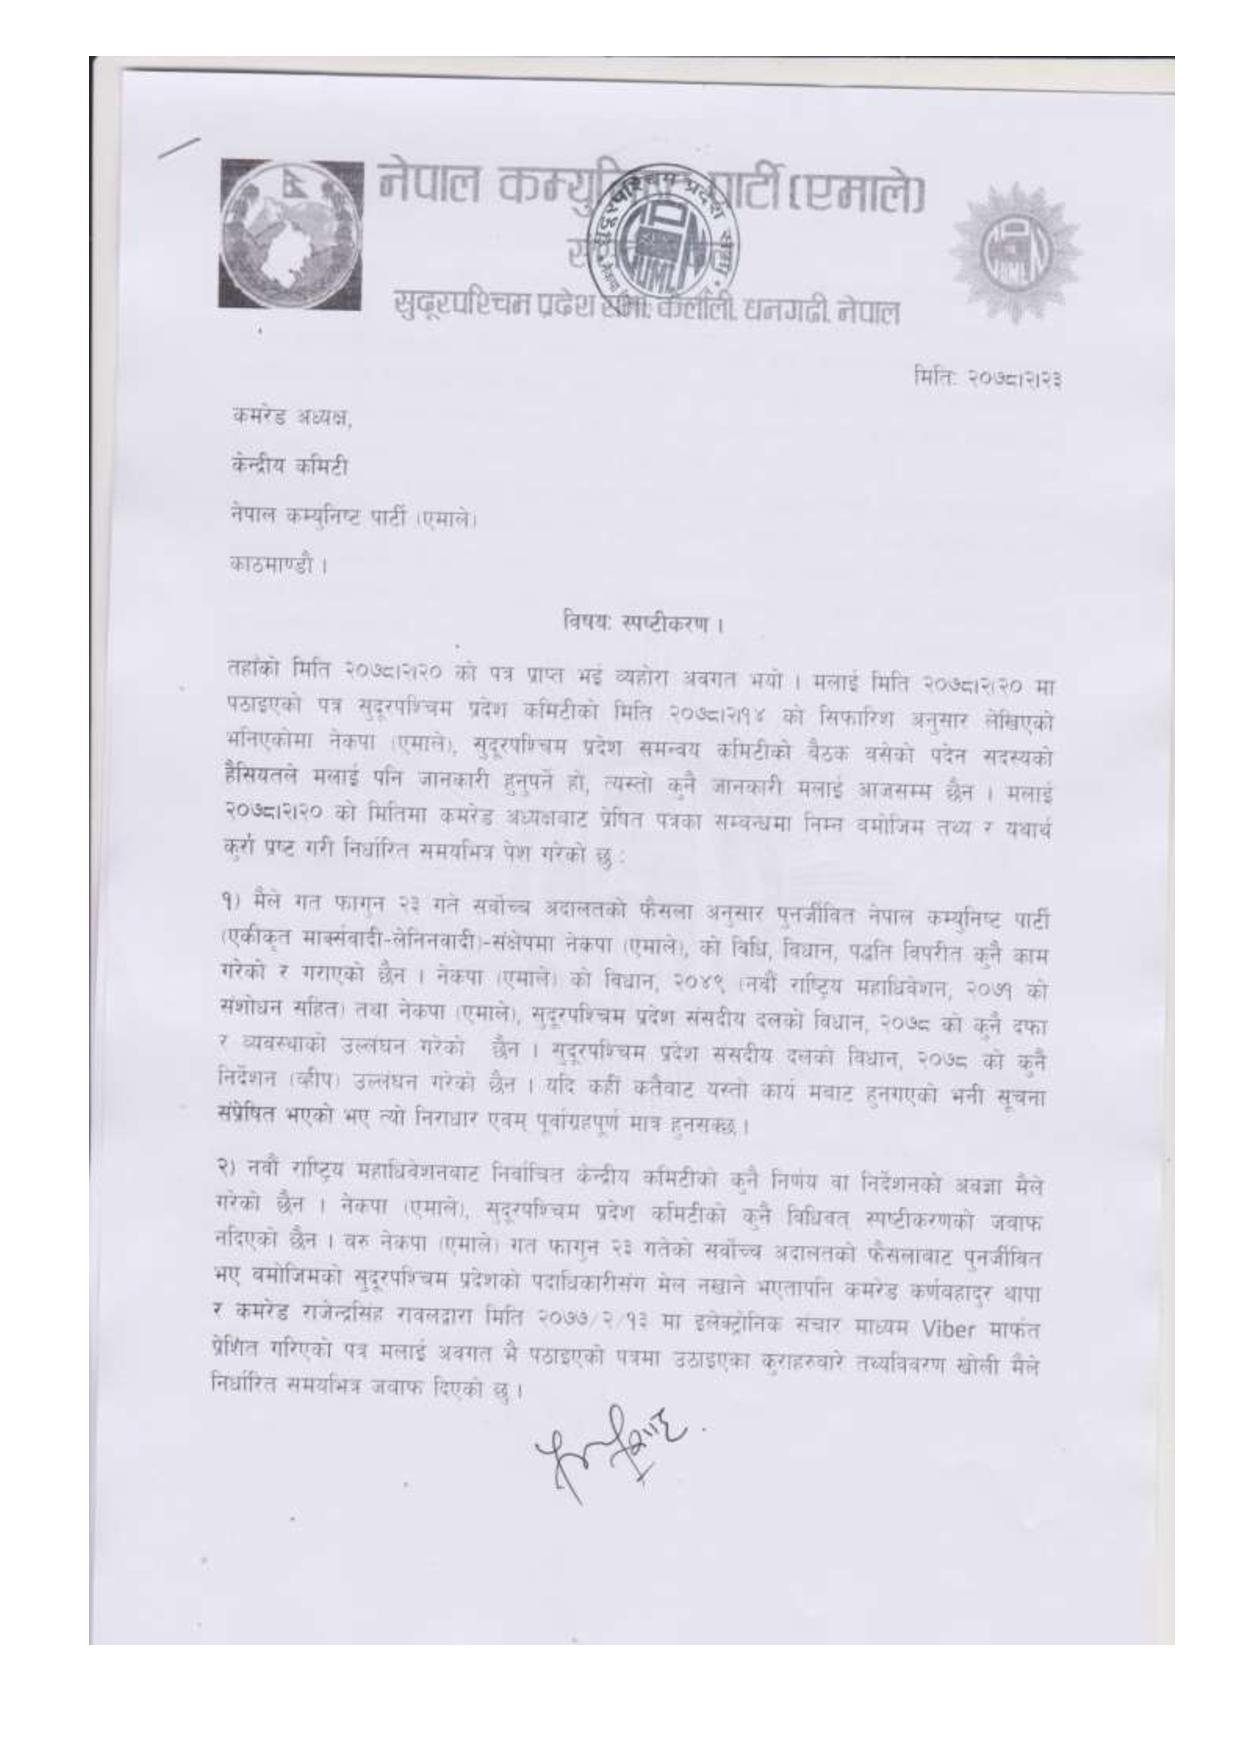 नेपाल पार्टी (एमाले)
सुदूरपश्चिम प्रदेश सभा, कैलाली, धनगढी, नेपाल
सुदूरपश्चिम प्रदेश सभा
मितिः २०७८।२।२३
कमरेड अध्यक्ष,
केन्द्रीय कमिटी
नेपाल कम्युनिष्ट पार्टी (एमाले)
काठमाण्डौ ।
विषयः स्पष्टीकरण ।
तहाँको मिति २०७८।२।२० को पत्र प्राप्त भई व्यहोरा अवगत भयो । मलाई मिति २०७८।२।२० मा
पठाइएको पत्र सुदूरपश्चिम प्रदेश कमिटीको मिति २०७८।२।१४ को सिफारिश अनुसार लेखिएको
भनिएकोमा नेकपा (एमाले), सुदूरपश्चिम प्रदेश समन्वय कमिटीको बैठक बसेको पदेन सदस्यको
हैसियतले मलाई पनि जानकारी हुनुपर्ने हो, त्यस्तो कुनै जानकारी मलाई आजसम्म छैन । मलाई
२०७८।२।२० को मितिमा कमरेड अध्यक्षबाट प्रेषित पत्रका सम्बन्धमा निम्न बमोजिम तथ्य र यथार्थ
कुरा प्रष्ट गरी निर्धारित समयभित्र पेश गरेको छु :
१) मैले गत फागुन २३ गते सर्वोच्च अदालतको फैसला अनुसार पुनर्जीवित नेपाल कम्युनिष्ट पार्टी
(एकीकृत मार्क्सवादी-लेनिनवादी)-संक्षेपमा नेकपा (एमाले), को विधि, विधान, पद्धति विपरीत कुनै काम
गरेको र गराएको छैन । नेकपा (एमाले) को विधान, २०४९ (नवौं राष्ट्रिय महाधिवेशन, २०७१ को
संशोधन सहित) तथा नेकपा (एमाले), सुदूरपश्चिम प्रदेश संसदीय दलको विधान, २०७८ को कुनै दफा
र व्यवस्थाको उल्लंघन गरेको छैन । सुदूरपश्चिम प्रदेश संसदीय दलको विधान, २०७८ को कुनै
निर्देशन (व्हीप) उल्लंघन गरेको छैन । यदि कहीं कतैबाट यस्तो कार्य मबाट हुनगएको भनी सूचना
संप्रेषित भएको भए त्यो निराधार एवम् पूर्वाग्रहपूर्ण मात्र हुनसक्छ ।
२) नवौं राष्ट्रिय महाधिवेशनबाट निर्वाचित केन्द्रीय कमिटीको कुनै निर्णय वा निर्देशनको अवज्ञा मैले
गरेको छैन । नेकपा (एमाले), सुदूरपश्चिम प्रदेश कमिटीको कुनै विधिवत् स्पष्टीकरणको जवाफ
नदिएको छैन । बरु नेकपा (एमाले) गत फागुन २३ गतेको सर्वोच्च अदालतको फैसलाबाट पुनर्जीवित
भए बमोजिमको सुदूरपश्चिम प्रदेशको पदाधिकारीसंग मेल नखाने भएतापनि कमरेड कर्णबहादुर थापा
र कमरेड राजेन्द्रसिंह रावलद्वारा मिति २०७७/२/१३ मा इलेक्ट्रोनिक संचार माध्यम Viber मार्फत
प्रेशित गरिएको पत्र मलाई अवगत भै पठाइएको पत्रमा उठाइएका कुराहरुबारे तथ्यविवरण खोली मैले
निर्धारित समयभित्र जवाफ दिएको छु ।